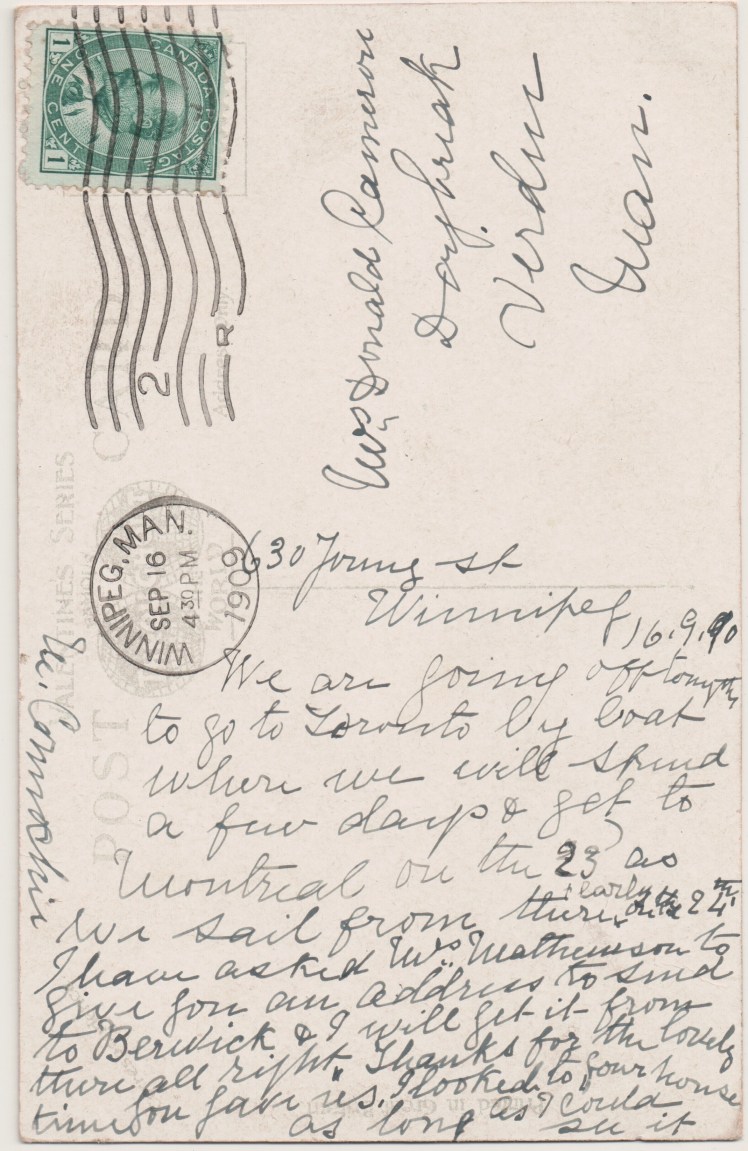 CANADA POSTAGE
ONE CENT
1 1
2 R
WINNIPEG, MAN.
SEP 16
4 30 P.M.
1909
POST CARD
VALENTINE'S SERIES
Address Only.
Printed in Great Britain
Mrs Donald Cameron
Daybreak
Virden
Man.
630 Young st
Winnipeg
16.9.
We are going off
to go to Toronto by boat
where we will spend
a few days & get to
Montreal on the 23 as
we sail from there early on the 24th
I have asked Mrs. Mathewson to
give you an address to send
to Berwick & I will get it from
there all right. Thanks for the lovely
time you gave us. I looked to your house
as long as I could see it